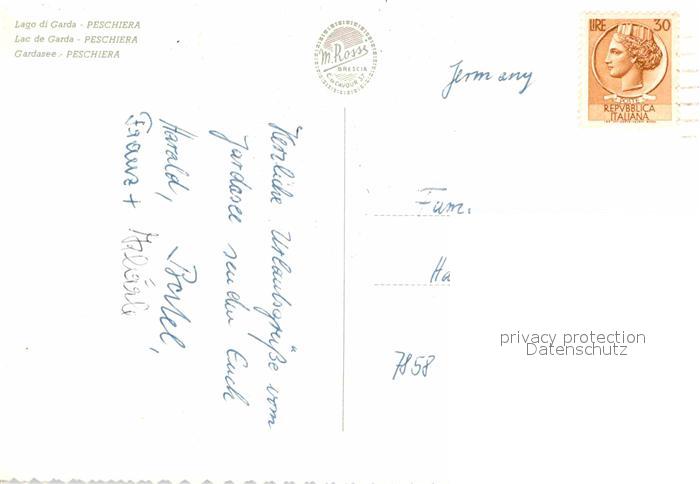 Lago di Garda - PESCHIERA
Lac de Garda - PESCHIERA
Gardasee - PESCHIERA
M. Rossi
BRESCIA
C. so CAVOUR 37
LIRE 30
POSTE
REPVBBLICA
ITALIANA
Jermany
Herzliche Urlaubsgrüße vom
Jardasee senden Euch
Harald,
Franz +
Fam.
Ha
7858
privacy protection
Datenschutz